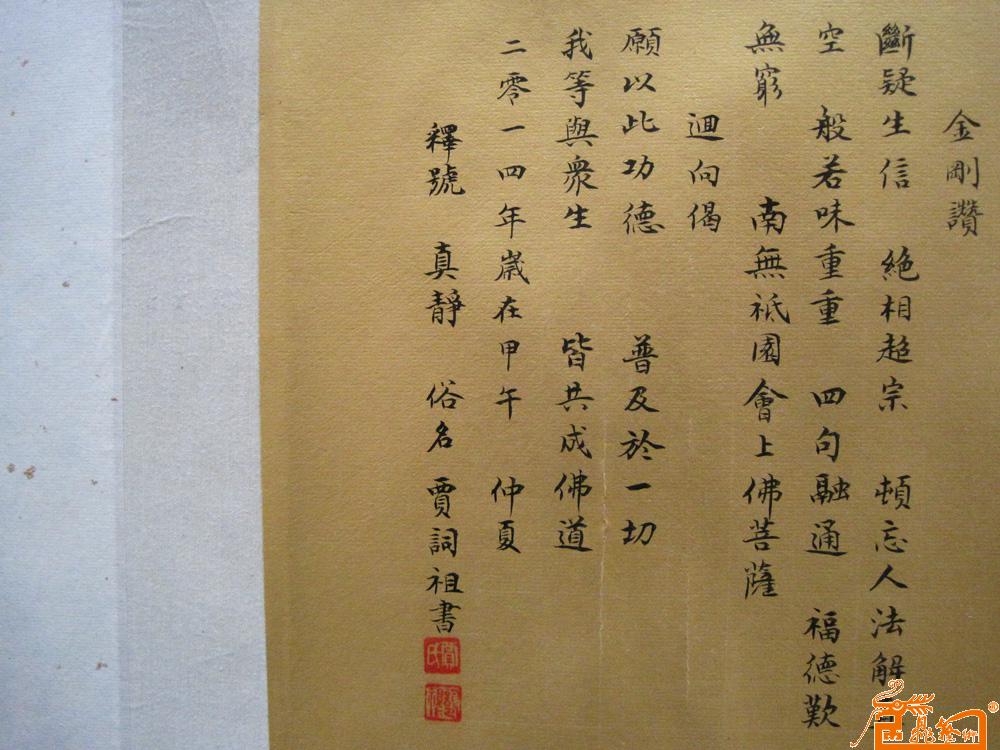 金剛讚
斷疑生信　絕相超宗　頓忘人法解
空　般若味重重　四句融通　福德歎
無窮　　南無祇園會上佛菩薩
迴向偈
願以此功德　　普及於一切
我等與眾生　　皆共成佛道
二零一四年歲在甲午　仲夏
釋號　真靜　俗名　賈詞祖書